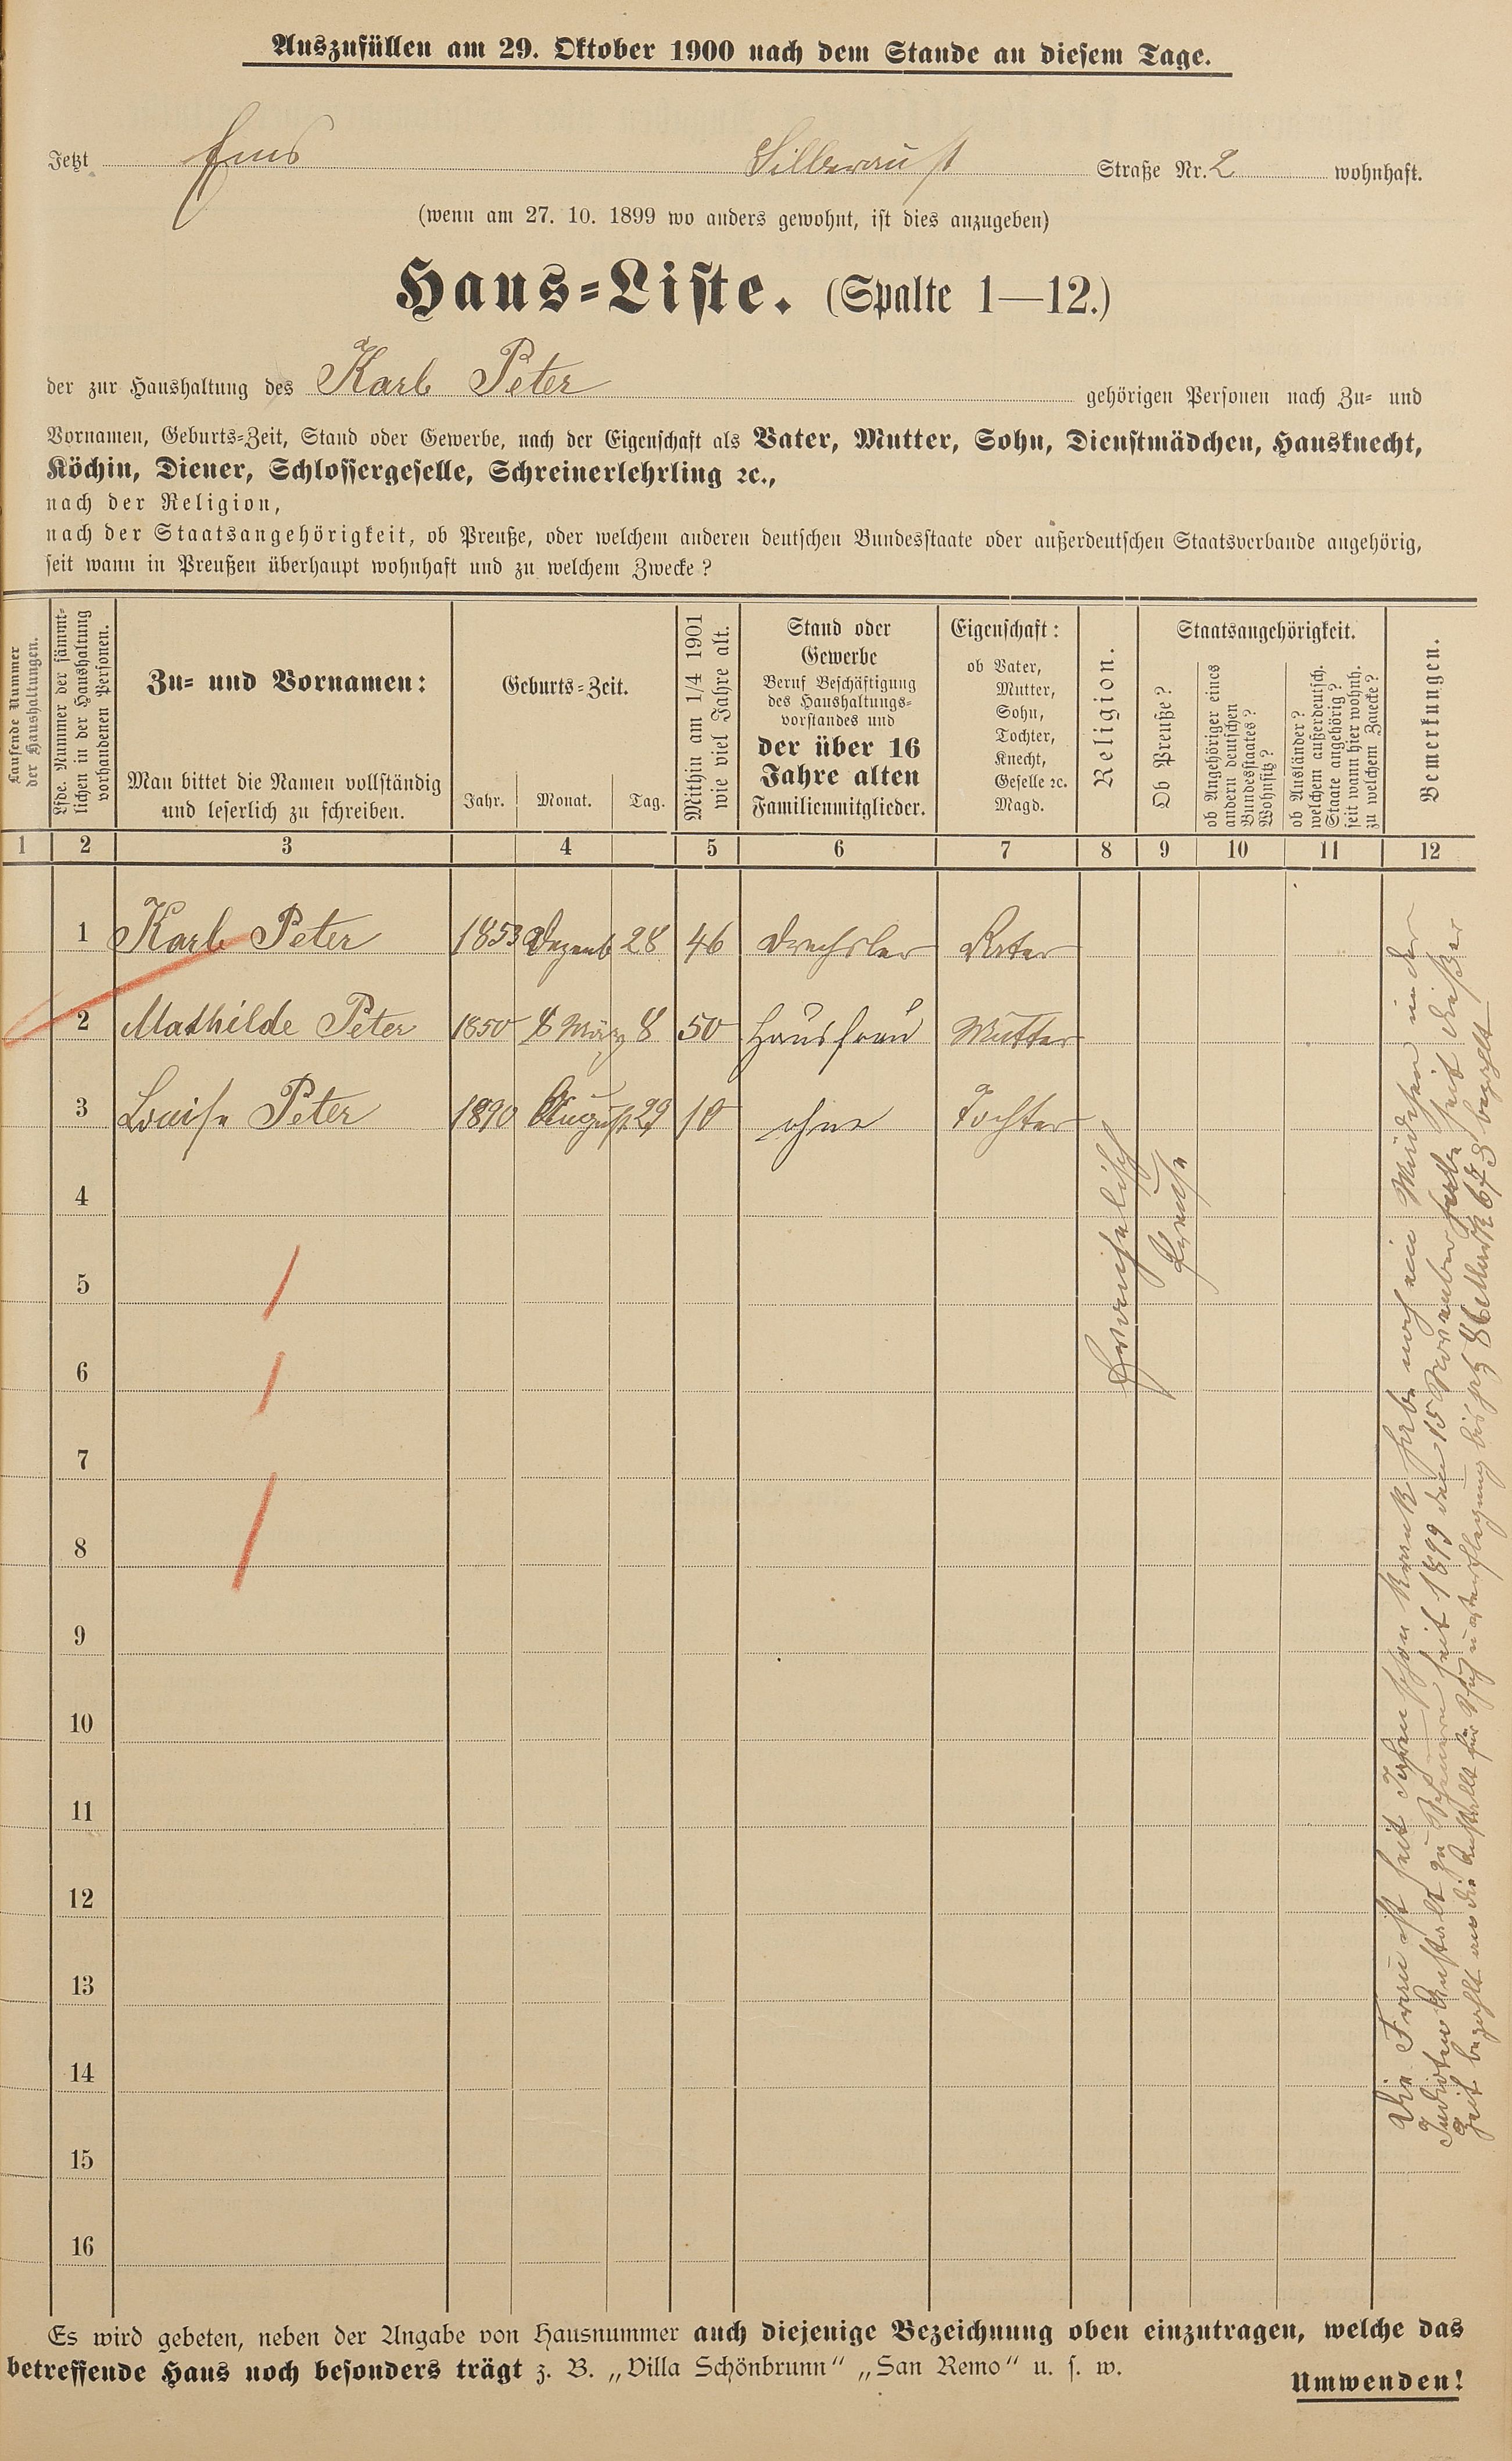 Auszufüllen am 29. Oktober 1900 nach dem Stande an diesem Tage.
Jetzt Ems Silberaust Straße Nr. 2 wohnhaft.
(wenn am 27. 10. 1899 wo anders gewohnt, ist dies anzugeben)
Haus=Liste. (Spalte 1—12.)
der zur Haushaltung des Karl Peter gehörigen Personen nach Zu= und
Vornamen, Geburts=Zeit, Stand oder Gewerbe, nach der Eigenschaft als Vater, Mutter, Sohn, Dienstmädchen, Hausknecht,
Köchin, Diener, Schlossergeselle, Schreinerlehrling ꝛc.,
nach der Religion,
nach der Staatsangehörigkeit, ob Preuße, oder welchem anderen deutschen Bundesstaate oder außerdeutschen Staatsverbande angehörig,
seit wann in Preußen überhaupt wohnhaft und zu welchem Zwecke?
Laufende Nummer
der Haushaltungen.
Lfde. Nummer der sämmt=
lichen in der Haushaltung
vorhandenen Personen.
Zu= und Vornamen:
Man bittet die Namen vollständig
und leserlich zu schreiben.
Geburts=Zeit.
Jahr. Monat. Tag.
Mithin am 1/4 1901
wie viel Jahre alt.
Stand oder
Gewerbe
Beruf Beschäftigung
des Haushaltungs=
vorstandes und
der über 16
Jahre alten
Familienmitglieder.
Eigenschaft:
ob Vater,
Mutter,
Sohn,
Tochter,
Knecht,
Geselle ꝛc.
Magd.
Religion.
Staatsangehörigkeit.
Ob Preuße?
ob Angehöriger eines
andern deutschen
Bundesstaates?
Wohnsitz?
ob Ausländer?
welchem außerdeutsch.
Staate angehörig?
seit wann hier wohnh.
zu welchem Zwecke?
Bemerkungen.
1 2 3 4 5 6 7 8 9 10 11 12
1 Karl Peter 1853 Dezemb 28 46 Drechsler Vater
2 Mathilde Peter 1850 8 März 8 50 Hausfrau Mutter
3 Louise Peter 1890 August 29 10 ohne Tochter
Evangelisch
Preuße
4
5
6
7
8
9
10
11
12
13
14
15
16
Die Frau ist seit Jahren schon krank habe noch ein Mädchen in der
Idioten Anstalt zu Scheuern seit 1899 den 15 November habe seit dießer
Zeit bezahlt an die Anstalt für bis jetzt 86 Mark 67 ₰ bezahlt
Es wird gebeten, neben der Angabe von Hausnummer auch diejenige Bezeichnung oben einzutragen, welche das
betreffende Haus noch besonders trägt z. B. „Villa Schönbrunn“ „San Remo“ u. s. w.
Umwenden!